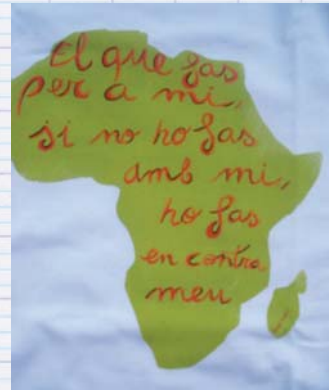 El que fas
per a mi,
si no ho fas
amb mi,
ho fas
en contra
meu